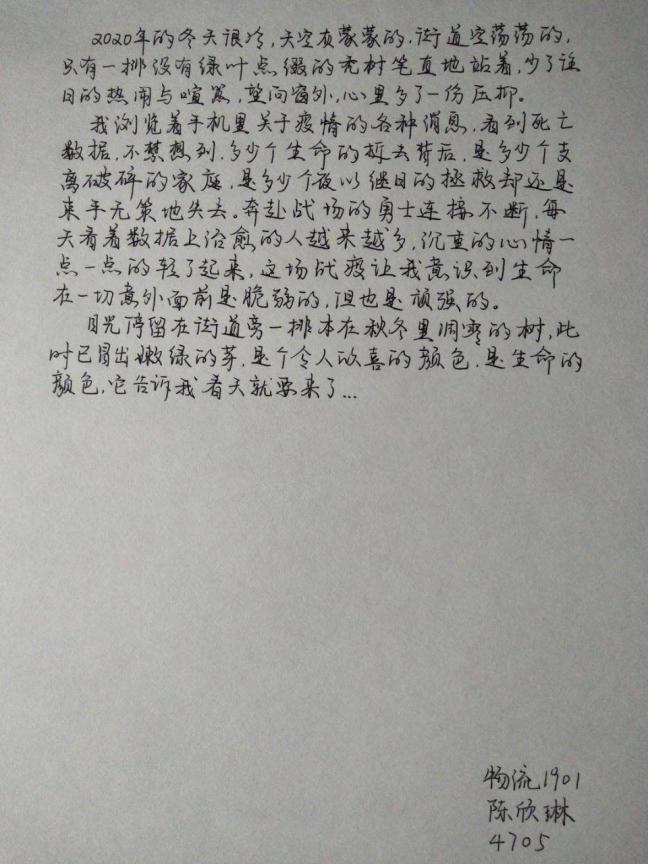 2020年的冬天很冷,天空灰蒙蒙的,街道空荡荡的,
只有一排没有绿叶点缀的秃树笔直地站着,少了往
日的热闹与喧嚣,望向窗外,心里多了一份压抑。
我浏览着手机里关于疫情的各种消息,看到死亡
数据,不禁想到,多少个生命的逝去背后,是多少个支
离破碎的家庭,是多少个夜以继日的拯救却还是
束手无策地失去。奔赴战场的勇士连接不断,每
天看着数据上治愈的人越来越多,沉重的心情一
点一点的轻了起来,这场战疫让我意识到生命
在一切意外面前是脆弱的,但也是顽强的。
目光停留在街道旁一排本在秋冬里凋零的树,此
时已冒出嫩绿的芽,是个令人欢喜的颜色,是生命的
颜色,它告诉我春天就要来了...
物流1901
陈欣琳
4705